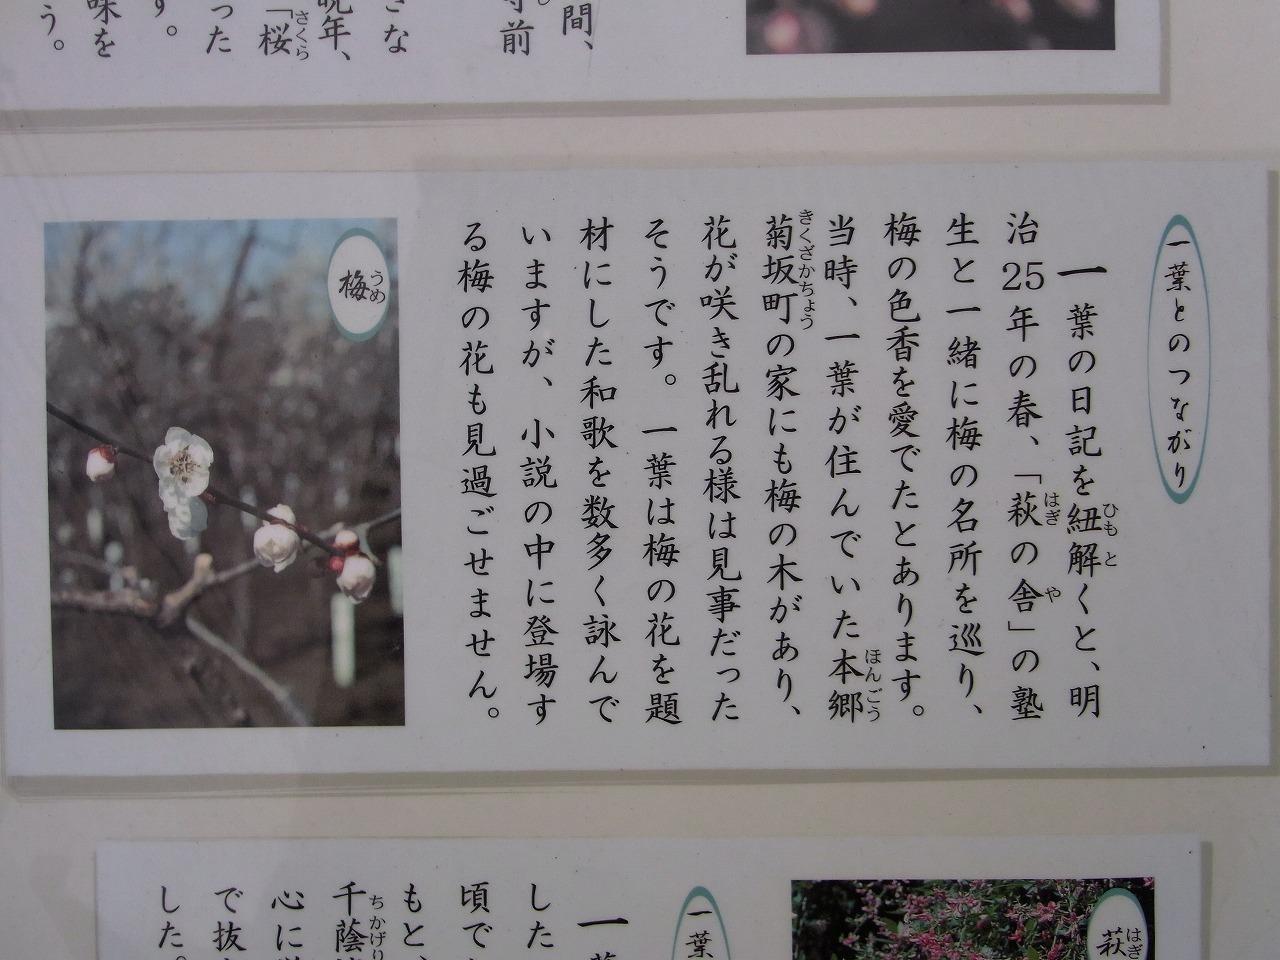 間、
寺前
さな
晩年、
「桜
さくら
った
す。
味を
う。
一葉とのつながり
一葉の日記を紐解くと、明
ひもと
治25年の春、「萩の舎」の塾
はぎ
や
生と一緒に梅の名所を巡り、
梅の色香を愛でたとあります。
当時、一葉が住んでいた本郷
ほんごう
菊坂町の家にも梅の木があり、
きくざかちょう
花が咲き乱れる様は見事だった
そうです。一葉は梅の花を題
材にした和歌を数多く詠んで
いますが、小説の中に登場す
る梅の花も見過ごせません。
梅
うめ
萩
はぎ
一葉
一葉
した
頃で
もと、
千蔭
ちかげ
心に
で抜
した。